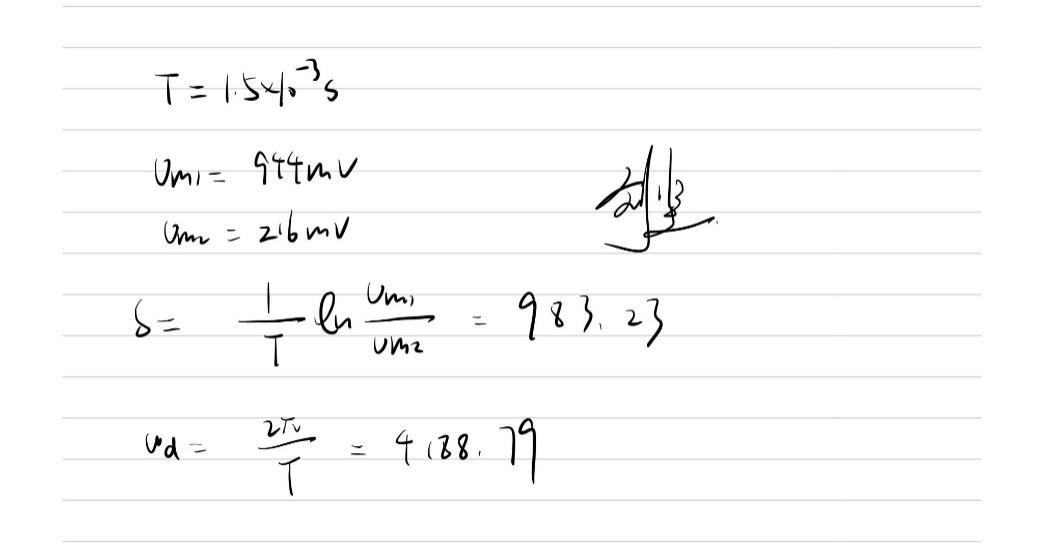 T = 1.5×10⁻³ s
Um1 = 944 mV
Um2 = 216 mV
δ = 1/T ln Um1/Um2 = 983.23
ωd = 2π/T = 4188.79